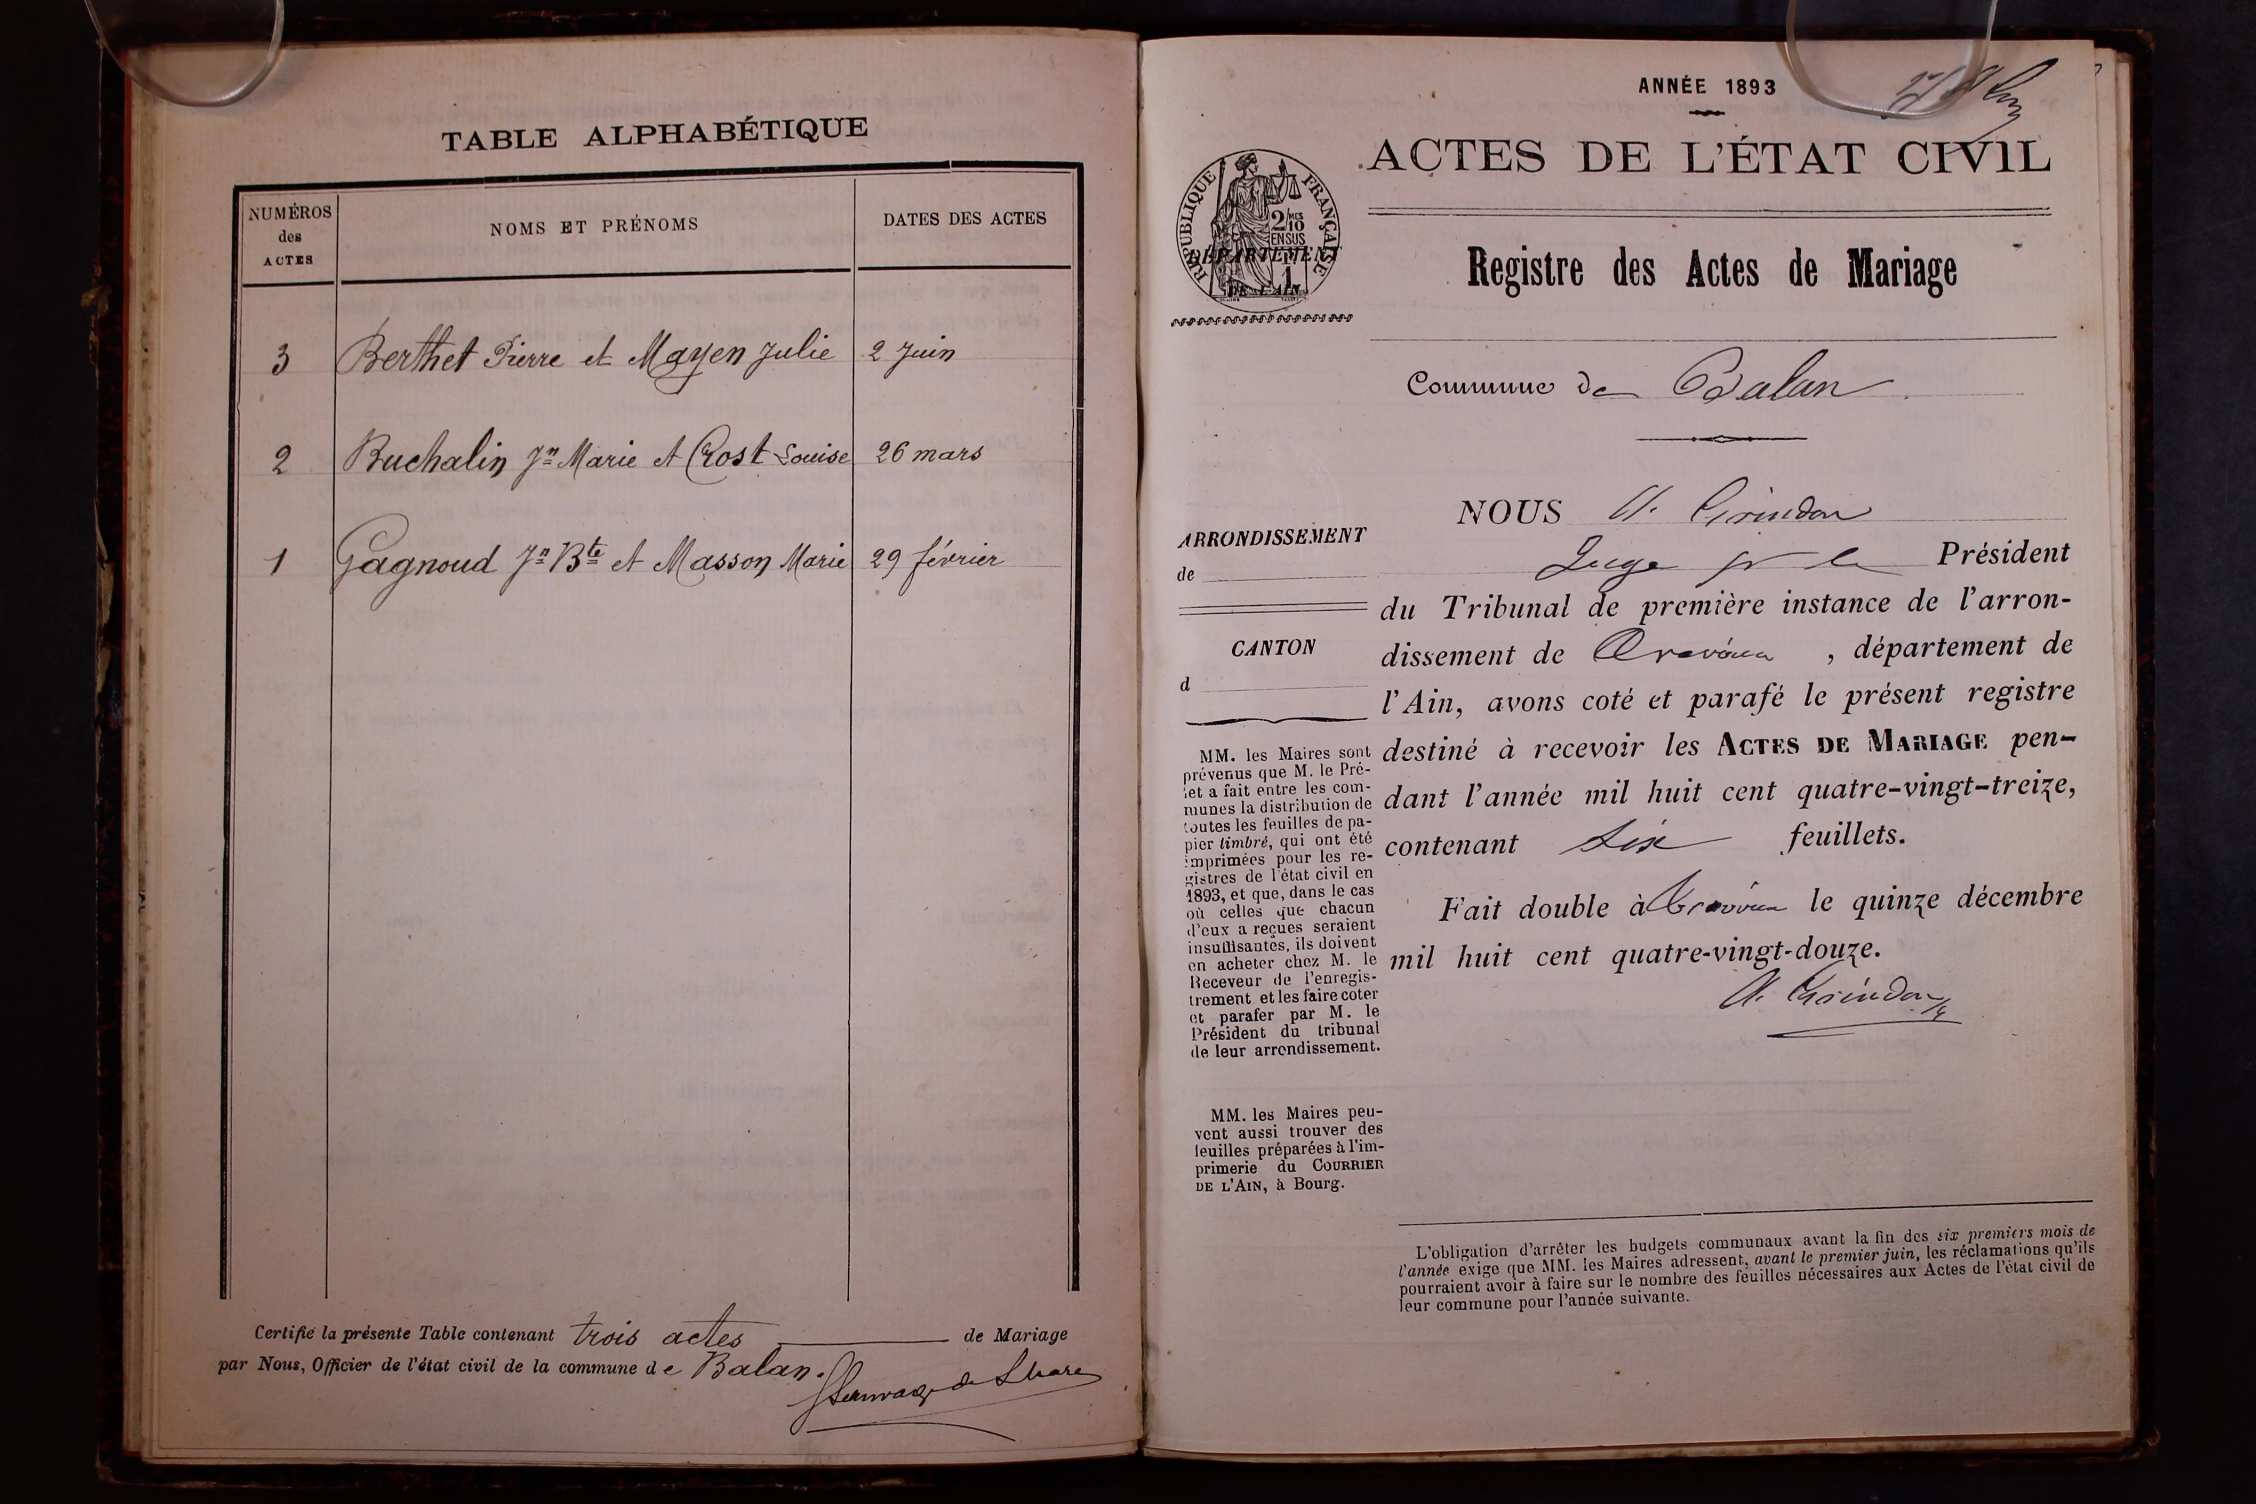 TABLE ALPHABÉTIQUE
NUMÉROS des ACTES
NOMS ET PRÉNOMS
DATES DES ACTES
3 Berthet Pierre et Mayen Julie 2 Juin
2 Buchalin Jn Marie et Crost Louise 26 mars
1 Gagnoud Jn Bte et Masson Marie 29 février
Certifié la présente Table contenant trois actes de Mariage
par Nous, Officier de l'état civil de la commune de Balan.
ANNÉE 1893
ACTES DE L'ÉTAT CIVIL
RÉPUBLIQUE FRANÇAISE
2/10
EN SUS
DÉPARTEMENT
DE L'AIN
Registre des Actes de Mariage
Commune de Balan
ARRONDISSEMENT
de
CANTON
d
MM. les Maires sont
prévenus que M. le Pré-
fet a fait entre les com-
munes la distribution de
toutes les feuilles de pa-
pier timbré, qui ont été
imprimées pour les re-
gistres de l'état civil en
1893, et que, dans le cas
où celles que chacun
d'eux a reçues seraient
insuffisantes, ils doivent
en acheter chez M. le
Receveur de l'enregis-
trement et les faire coter
et parafer par M. le
Président du tribunal
de leur arrondissement.
MM. les Maires peu-
vent aussi trouver des
feuilles préparées à l'im-
primerie du COURRIER
DE L'AIN, à Bourg.
NOUS A. Grindon
Juge pr le Président
du Tribunal de première instance de l'arron-
dissement de Trévoux, département de
l'Ain, avons coté et parafé le présent registre
destiné à recevoir les ACTES DE MARIAGE pen-
dant l'année mil huit cent quatre-vingt-treize,
contenant six feuillets.
Fait double à Trévoux le quinze décembre
mil huit cent quatre-vingt-douze.
A. Grindon
L'obligation d'arrêter les budgets communaux avant la fin des six premiers mois de
l'année exige que MM. les Maires adressent, avant le premier juin, les réclamations qu'ils
pourraient avoir à faire sur le nombre des feuilles nécessaires aux Actes de l'état civil de
leur commune pour l'année suivante.